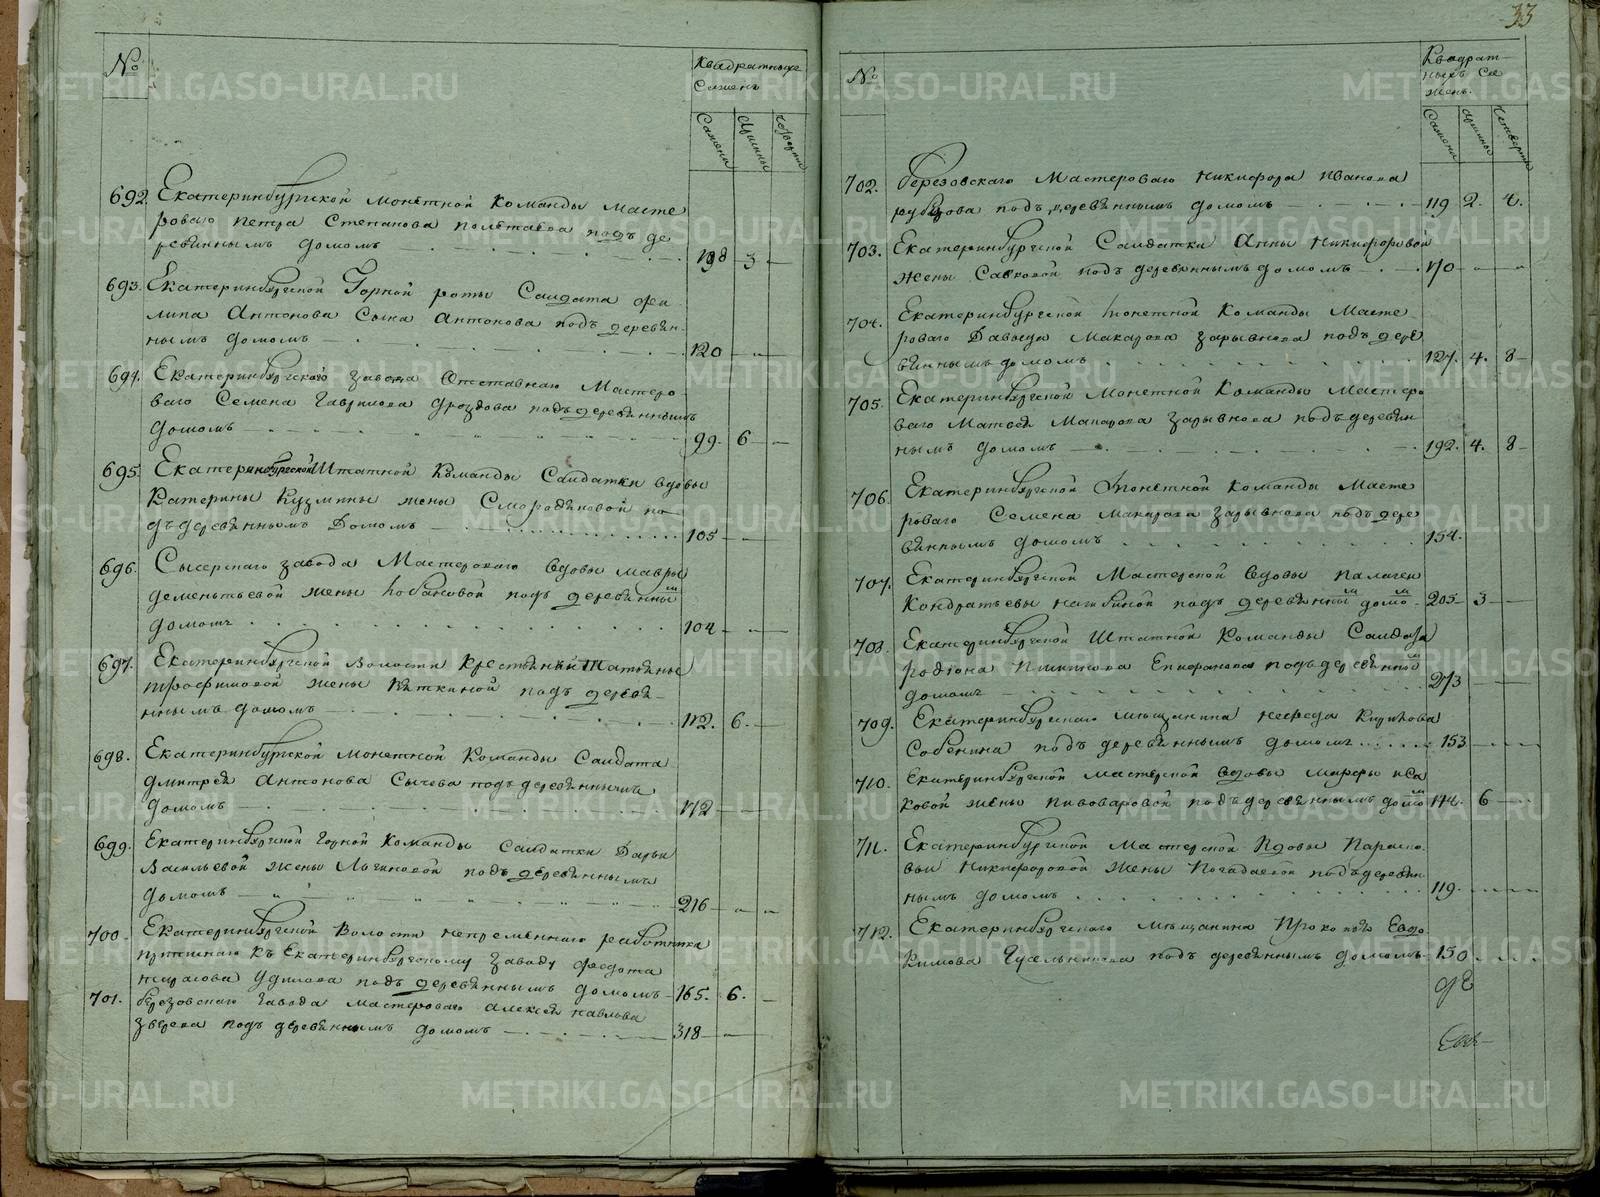 №
Квадратныхъ
Сажень
Сажени
Аршины
Четверти
692. Екатеринбургской монетной команды масте
роваго Петра Степанова Полетаева подъ де
ревяннымъ домомъ 198 3
693. Екатеринбургской Горной роты Салдата Фи
липа Антонова Сына Антонова подъ деревян
нымъ домомъ 120
694. Екатеринбургскаго завода Отставнаго Мастеро
ваго Семена Гаврилова Дроздова подъ деревяннымъ
домомъ 99. 6
695. Екатеринбургской Штатной Команды Салдатки вдовы
Катерины Кузмины жены Смородиновой по
дъ деревяннымъ Домомъ 105
696. Сысерскаго завода Мастерскаго вдовы мавры
дементьевой жены Лобановой подъ деревянны
домомъ 104
697. Екатеринбургской волости Крестьянки Татьяны
трофимовой жены Вяткиной подъ деревя
ннымъ домомъ 112. 6
698. Екатеринбургской монетной Команды Салдата
дмитрея Антонова Сычева подъ деревяннымъ
домомъ 172
699. Екатеринбургской Горной Команды Салдатки Дарьи
Васильевой жены Логиновой подъ деревяннымъ
домомъ 216
700. Екатеринбургской Волости непременнаго работника
къ Екатеринбургскому заводу Федота
подъ деревяннымъ домомъ 165. 6
701. березовскаго завода мастероваго алексея павлова
зверева подъ деревяннымъ домомъ 318
33
№
Квадрат
ныхъ Са
жень.
Сажени
Аршины
Четверти
702. березовскаго Мастероваго Никифора Иванова
подъ деревяннымъ домомъ 119 2. 4.
703. Екатеринбургской Салдатки Анны Никифоровой
жены Савковой подъ деревяннымъ домомъ 170
704. Екатеринбургской Монетной Команды Масте
роваго Давыда Макарова Зарывнова подъ дере
вяннымъ домомъ 127. 4. 8
705. Екатеринбургской Монетной Команды Мастеро
ваго Матвея Макарова Зарывнова подъ деревян
нымъ домомъ 192. 4. 8
706. Екатеринбургской Монетной Команды Масте
роваго Семена Макарова Зарывнова подъ дере
вяннымъ домомъ 154.
707. Екатеринбургской Мастерской вдовы палагеи
Кондратьевы подъ деревянны домо 205 3
708. Екатеринбургской Штатной Команды Салдата
родиона Епифанова подъ деревянны
домомъ 273
709. Екатеринбургскаго мещанина нефеда
Собенина подъ деревяннымъ домомъ 153
710. Екатеринбургской мастерской вдовы марфы иса
ковой жены пивоваровой подъ деревяннымъ домо 114. 6
711. Екатеринбургской Мастерской Вдовы Параско
вьи Никифоровой жены Погадаевой подъ деревян
нымъ домомъ 119.
712. Екатеринбургскаго мещанина Прокопья Евдо
кимова подъ деревяннымъ домомъ 150
METRIKI.GASO-URAL.RU